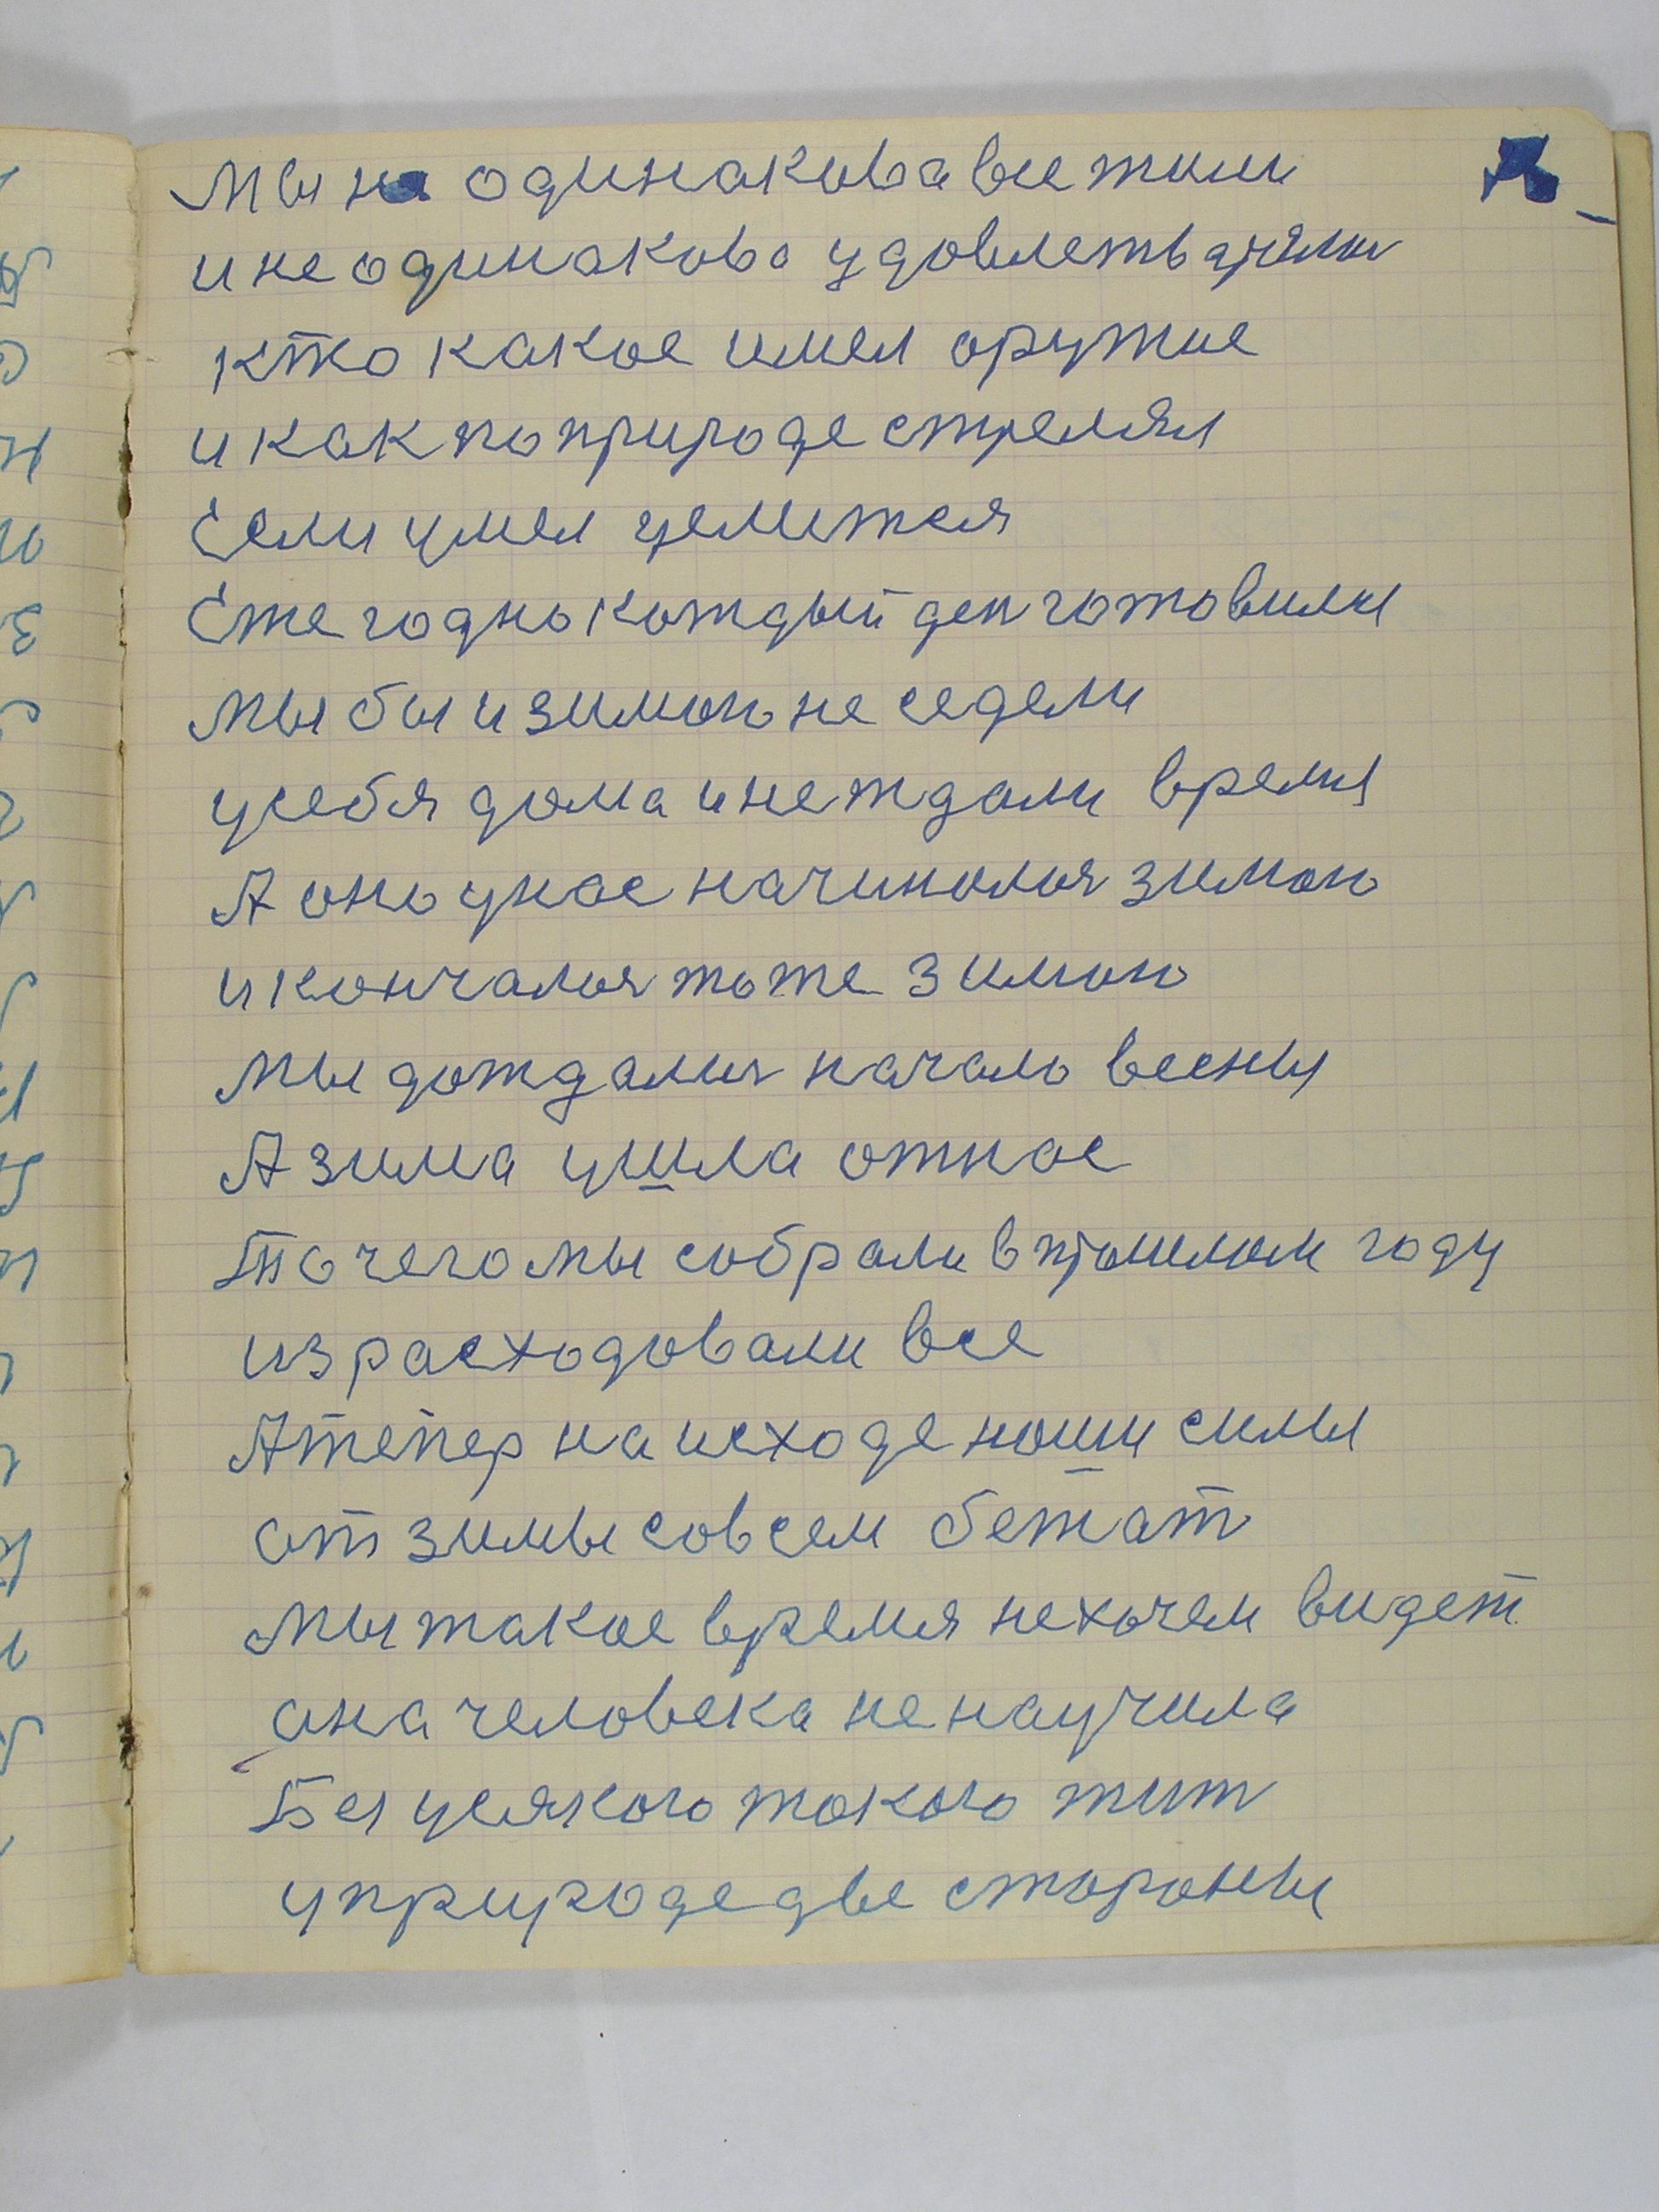 Мы на одинакова все жили
и не одинаково удовлетварялись
кто какое имел оружие
и как по природе стрелял
Если умел целится
Ежегодно каждый ден готовилы
мы бы и зимою не седели
усебя дома и не ждали время
А оно унас начиналося зимою
и кончалося тоже зимою
мы дождалися начало весны
А зима ушла отнас
То чего мы собрали в прошлом году
израсходовали все
А тепер на исходе наши силы
от зимы совсем бежат
мы такое время не хочем видет
она человека не научила
Без усякого такого жит
уприроде две стороны